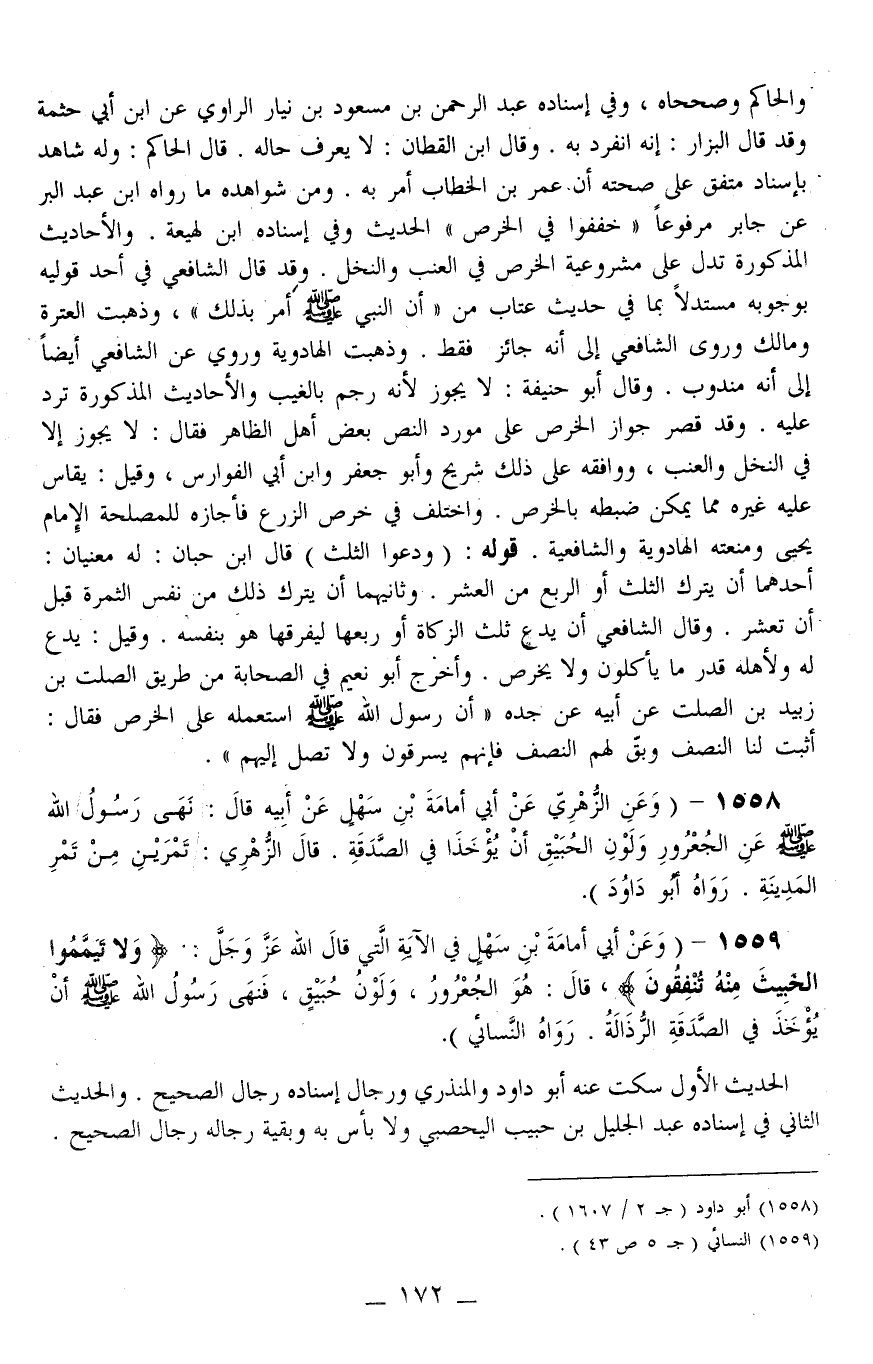 والحاكم وصححاه ، وفي إسناده عبد الرحمن بن مسعود بن نيار الراوي عن ابن أبي حثمة
وقد قال البزار : إنه انفرد به . وقال ابن القطان : لا يعرف حاله . قال الحاكم : وله شاهد
بإسناد متفق على صحته أن عمر بن الخطاب أمر به . ومن شواهده ما رواه ابن عبد البر
عن جابر مرفوعاً « خففوا في الخرص » الحديث وفي إسناده ابن لهيعة . والأحاديث
المذكورة تدل على مشروعية الخرص في العنب والنخل . وقد قال الشافعي في أحد قوليه
بوجوبه مستدلاً بما في حديث عتاب من « أن النبي ﷺ أمر بذلك » ، وذهبت العترة
ومالك وروى الشافعي إلى أنه جائز فقط . وذهبت الهادوية وروي عن الشافعي أيضاً
إلى أنه مندوب . وقال أبو حنيفة : لا يجوز لأنه رجم بالغيب والأحاديث المذكورة ترد
عليه . وقد قصر جواز الخرص على مورد النص بعض أهل الظاهر فقال : لا يجوز إلا
في النخل والعنب ، ووافقه على ذلك شريح وأبو جعفر وابن أبي الفوارس ، وقيل : يقاس
عليه غيره مما يمكن ضبطه بالخرص . واختلف في خرص الزرع فأجازه للمصلحة الإمام
يحيى ومنعته الهادوية والشافعية . قوله : ( ودعوا الثلث ) قال ابن حبان : له معنيان :
أحدهما أن يترك الثلث أو الربع من العشر . وثانيهما أن يترك ذلك من نفس الثمرة قبل
أن تعشر . وقال الشافعي أن يدع ثلث الزكاة أو ربعها ليفرقها هو بنفسه . وقيل : يدع
له ولأهله قدر ما يأكلون ولا يخرص . وأخرج أبو نعيم في الصحابة من طريق الصلت بن
زبيد بن الصلت عن أبيه عن جده « أن رسول الله ﷺ استعمله على الخرص فقال :
أثبت لنا النصف وبقّ لهم النصف فإنهم يسرقون ولا تصل إليهم » .
١٥٥٨ – ( وَعَنِ الزُّهْرِيّ عَنْ أبي أمامَةَ بْنِ سَهْلٍ عَنْ أبِيه قالَ : نَهَى رَسُولُ الله
ﷺ عَنِ الجُعْرُورِ وَلَوْنِ الحُبَيْقِ أنْ يُؤْخَذَا في الصَّدَقَةِ . قالَ الزُّهْرِي : تَمْرَيْنِ مِنْ تَمْرِ
المَدِينَةِ . رَوَاهُ أبُو دَاوُدَ ).
١٥٥٩ – ( وَعَنْ أبي أمامَةَ بْنِ سَهْلٍ في الآيَةِ الَّتي قالَ الله عَزَّ وَجَلَّ : ﴿ وَلا تَيَمَّمُوا
الخَبِيثَ مِنْهُ تُنْفِقُونَ ﴾ ، قالَ : هُوَ الجُعْرُورُ ، وَلَوْنُ حُبَيْقٍ ، فَنهَى رَسُولُ الله ﷺ أنْ
يُؤْخَذَ في الصَّدَقَةِ الرُّذَالَةُ . رَوَاهُ النَّسائي ).
الحديث الأول سكت عنه أبو داود والمنذري ورجال إسناده رجال الصحيح . والحديث
الثاني في إسناده عبد الجليل بن حبيب اليحصبي ولا بأس به وبقية رجاله رجال الصحيح .
(١٥٥٨) أبو داود ( جـ ٢ / ١٦٠٧ ) .
(١٥٥٩) النسائي ( جـ ٥ ص ٤٣ ) .
– ١٧٢ –